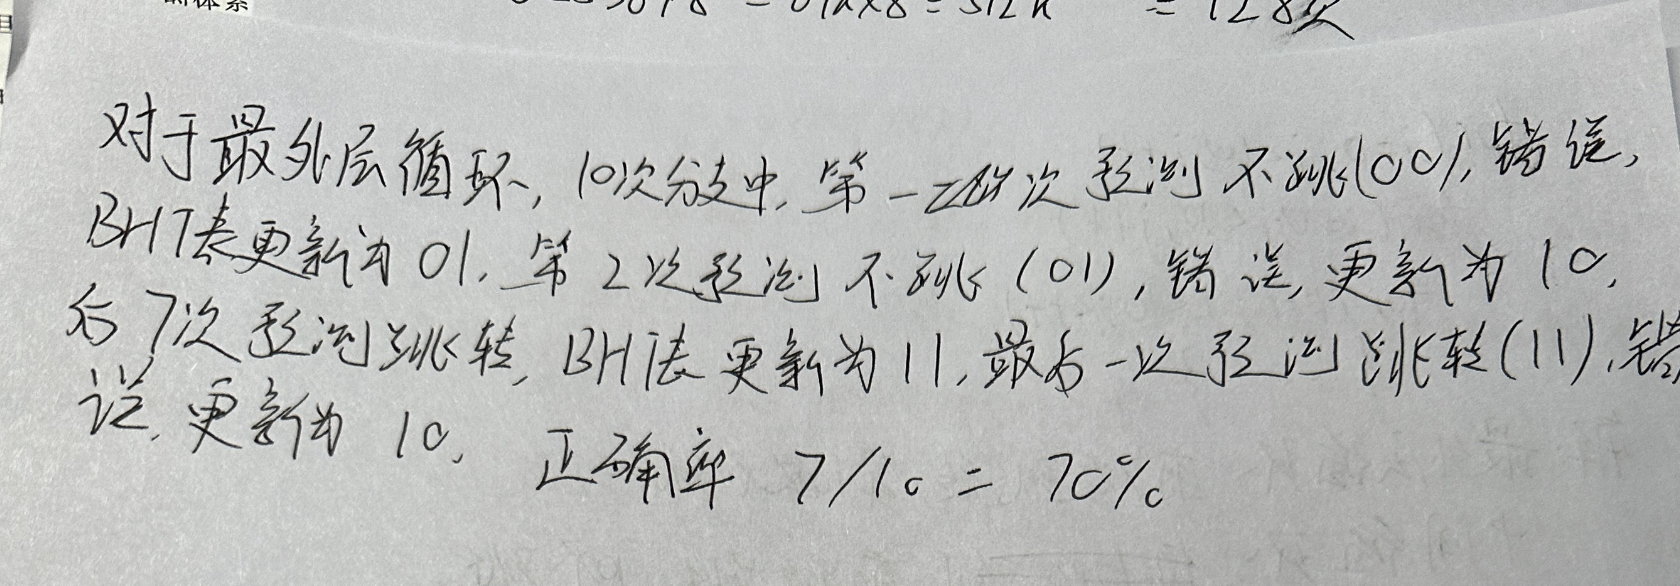 对于最外层循环,10次分支中,第一次预测不跳(00),错误,
BHT表更新为01.第2次预测不跳(01),错误,更新为10,
后7次预测跳转,BHT表更新为11,最后一次预测跳转(11),错
误,更新为10,正确率 7/10 = 70%